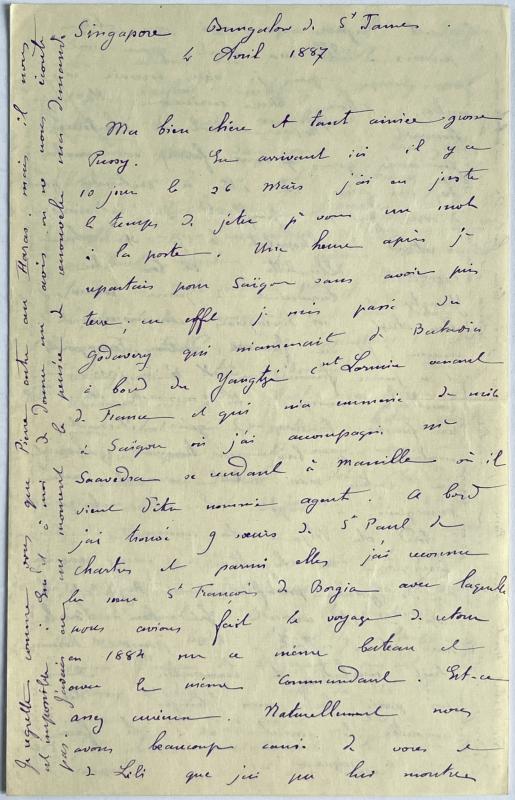 Singapore Bungalow de St James.
4 Avril 1887
Ma bien chère et tant aimée grosse
Pussy. En arrivant ici il y a
10 jours le 26 Mars j'ai eu juste
le temps de jeter pr vous un mot
à la poste. Une heure après je
repartais pour Saïgon sans avoir pris
terre; en effet je suis passé du
Godavery qui m'amenait de Batavia
à bord du Yangtzé Cnt Lormier venant
de France et qui m'a emmené de suite
à Saïgon où j'ai accompagné Mr
Saavedra se rendant à Manille où il
vient d'être nommé agent. A bord
j'ai trouvé 9 sœurs de St Paul de
Chartres et parmi elles j'ai reconnu
la sœur St François de Borgia avec laquelle
nous avions fait le voyage de retour
en 1884 sur ce même bateau et
avec le même commandant. Est-ce
assez curieux. Naturellement nous
avons beaucoup causé de vous et
de Lili que j'ai pu lui montrer
Je regrette comme vous que Pierre entre au Haras. mais il nous
est impossible à moi de donner un avis on ne nous écoute
pas. J'avais eu un moment la pensée de renouveler ma demande